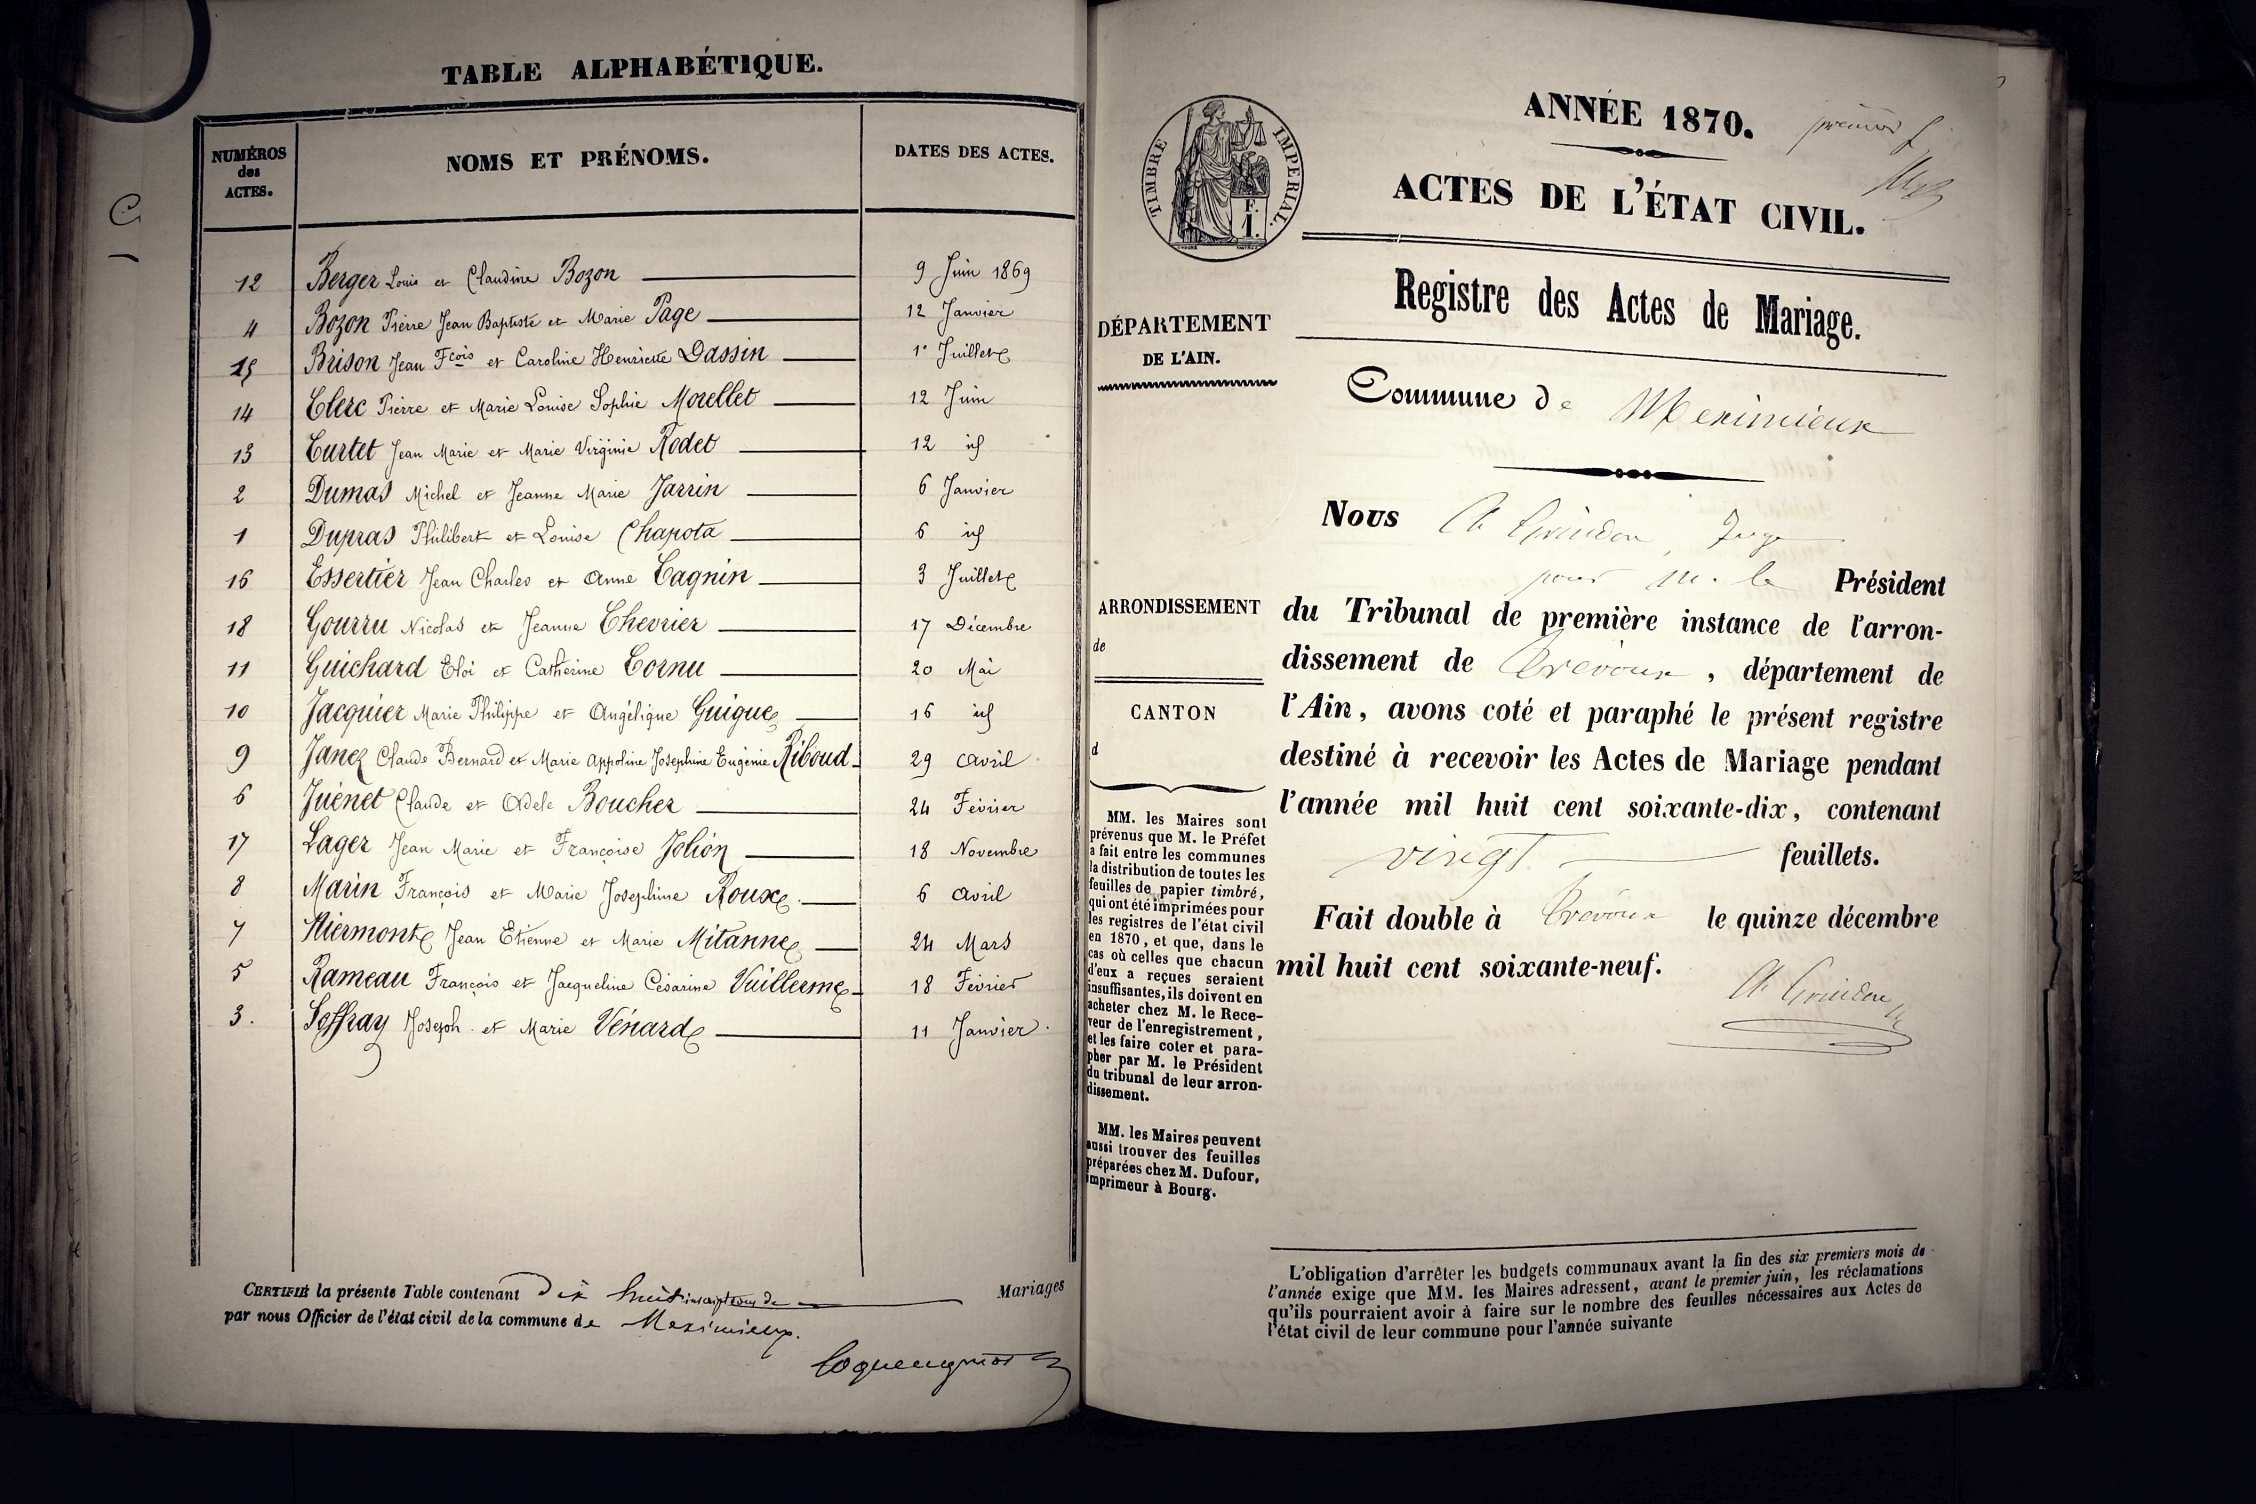 TABLE ALPHABÉTIQUE.
NUMÉROS des ACTES. NOMS ET PRÉNOMS. DATES DES ACTES.
12 Berger Louis et Claudine Bozon 9 Juin 1869
4 Bozon Pierre Jean Baptiste et Marie Page 12 Janvier
15 Brison Jean Fcois et Caroline Henriette Dassin 1er Juillet
14 Clerc Pierre et Marie Louise Sophie Morellet 12 Juin
13 Curtet Jean Marie et Marie Virginie Rodet 12 id
2 Dumas Michel et Jeanne Marie Jarrin 6 Janvier
1 Dupras Philibert et Louise Chapota 6 id
16 Essertier Jean Charles et Anne Cagnin 3 Juillet
18 Gourru Nicolas et Jeanne Chevrier 17 Décembre
11 Guichard Eloi et Catherine Cornu 20 Mai
10 Jacquier Marie Philippe et Angélique Guigue 16 id
9 Janez Claude Bernard et Marie Appoline Josephine Eugénie Riboud 29 Avril
6 Juenet Claude et Adele Boucher 24 Février
17 Lager Jean Marie et Françoise Jolion 18 Novembre
8 Marin François et Marie Josephine Roux 6 Avril
7 Miermont Jean Etienne et Marie Mitanne 24 Mars
5 Rameau François et Jacqueline Césarine Vuillerme 18 Février
3. Soffray Joseph et Marie Vénard 11 Janvier
CERTIFIÉ la présente Table contenant Dix huit inscriptions de Mariages
par nous Officier de l'état civil de la commune de Meximieux.
ANNÉE 1870.
premier f
ACTES DE L'ÉTAT CIVIL.
TIMBRE IMPERIAL.
F.
1.
Registre des Actes de Mariage.
DÉPARTEMENT
DE L'AIN.
Commune de Meximieux
Nous Ch Grindon, Juge
pour M. le Président
du Tribunal de première instance de l'arron-
dissement de Trévoux, département de
l'Ain, avons coté et paraphé le présent registre
destiné à recevoir les Actes de Mariage pendant
l'année mil huit cent soixante-dix, contenant
vingt feuillets.
Fait double à Trévoux le quinze décembre
mil huit cent soixante-neuf.
Ch Grindon
ARRONDISSEMENT
de
CANTON
d
MM. les Maires sont
prévenus que M. le Préfet
a fait entre les communes
la distribution de toutes les
feuilles de papier timbré,
qui ont été imprimées pour
les registres de l'état civil
en 1870, et que, dans le
cas où celles que chacun
d'eux a reçues seraient
insuffisantes, ils doivent en
acheter chez M. le Rece-
veur de l'enregistrement,
et les faire coter et para-
pher par M. le Président
du tribunal de leur arron-
dissement.
MM. les Maires peuvent
aussi trouver des feuilles
préparées chez M. Dufour,
imprimeur à Bourg.
L'obligation d'arrêter les budgets communaux avant la fin des six premiers mois de
l'année exige que MM. les Maires adressent, avant le premier juin, les réclamations
qu'ils pourraient avoir à faire sur le nombre des feuilles nécessaires aux Actes de
l'état civil de leur commune pour l'année suivante